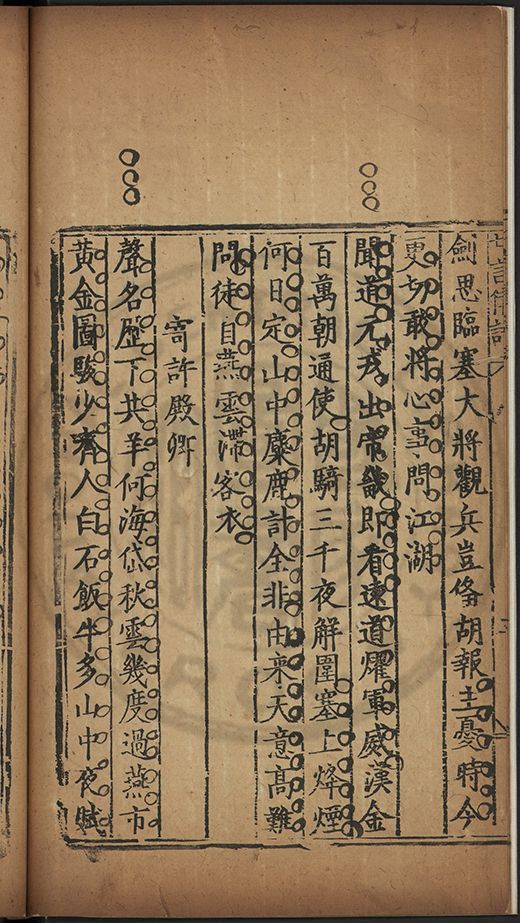 劍思臨塞大將觀兵豈俻胡報主憂時今
更切敢將心事問江湖
聞道元戎出畿即看道燿軍威漢金
百萬朝通使胡騎三千夜解圍塞上烽煙
何日定山中麋鹿計全非由来天意髙難
問徒自燕雲滯客衣
寄許殿卿
聲名歷下共羊何海岱秋雲幾度過燕市
黃金圖駿少齊人白石飯牛多山中夜賦